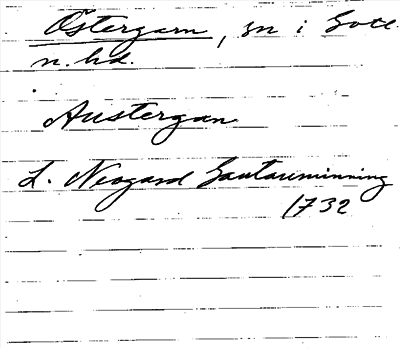 Östergarn, sn i Gotl.
n. hd.
Austergan
L. Neogard Gautauminning
1732